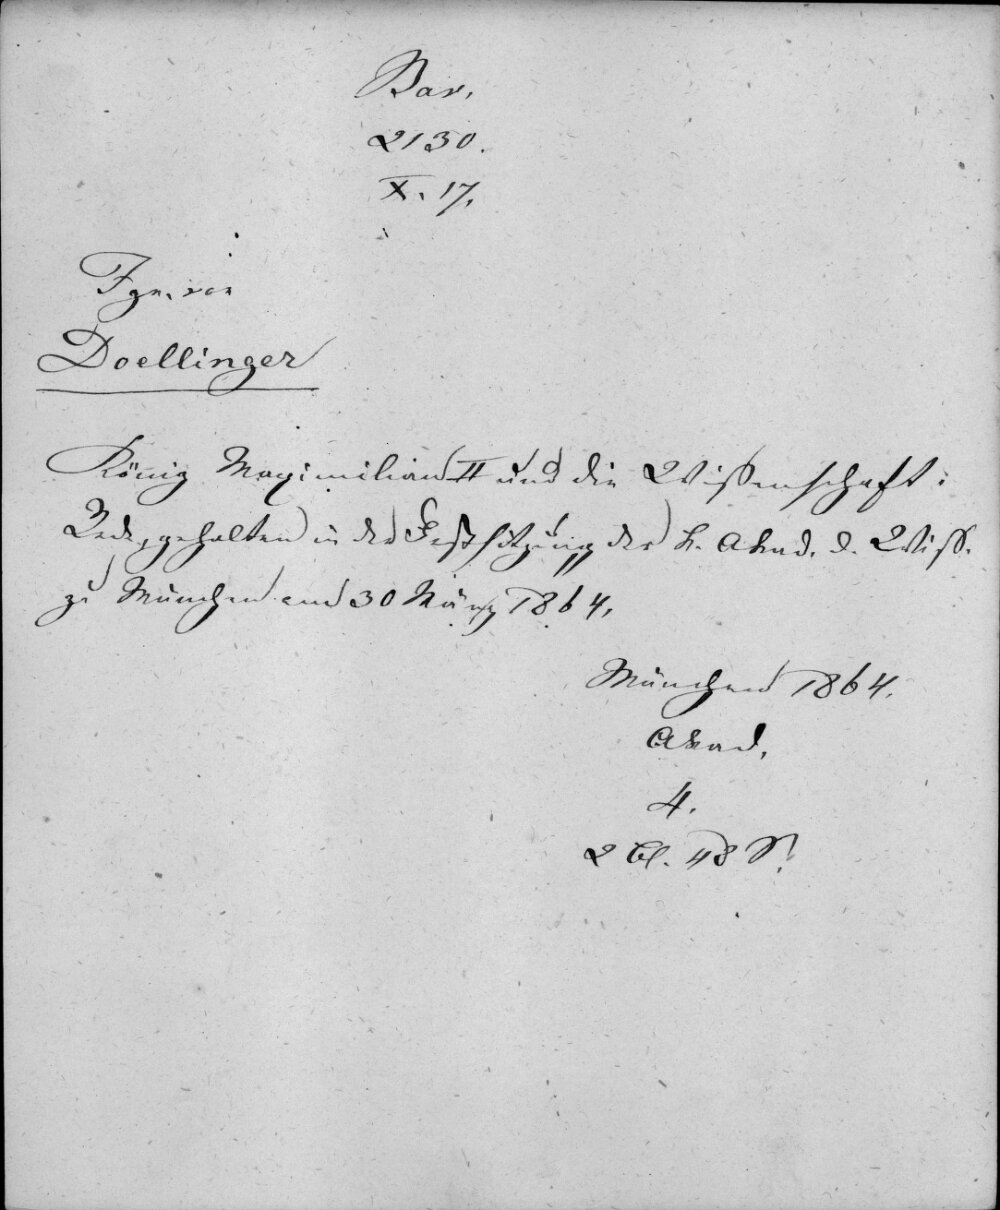 Bav.
2130.
X. 17.
Ign. von
Doellinger
König Maximilian II und die Wissenschaft:
Rede, gehalten in der Festsitzung der k. Akad. d. Wiss.
zu München am 30 März 1864.
München 1864.
Akad.
4.
2 Bl. 48 S.